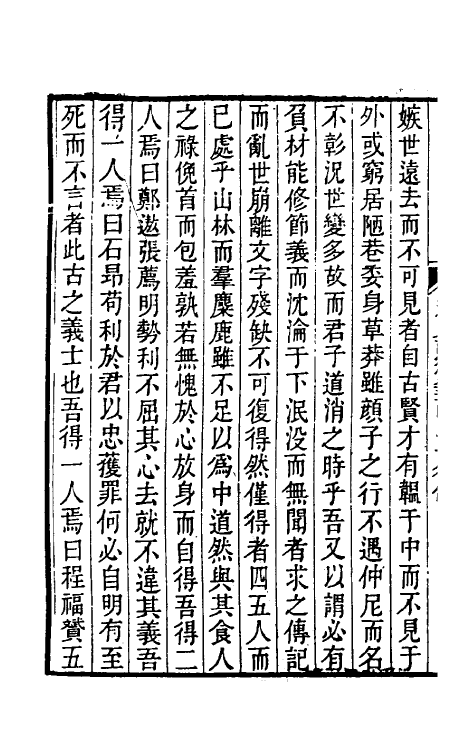 嫉世遠去而不可見者自古賢才有韞于中而不見于
外或窮居陋巷委身草莽雖顔子之行不遇仲尼而名
不彰況世變多故而君子道消之時乎吾又以謂必有
負材能修節義而沈淪于下泯没而無聞者求之傳記
而亂世崩離文字殘缺不可復得然僅得者四五人而
已處乎山林而羣麋鹿雖不足以爲中道然與其食人
之祿俛首而包羞孰若無愧於心放身而自得吾得二
人焉曰鄭遨張薦明勢利不屈其心去就不違其義吾
得一人焉曰石昂苟利於君以忠獲罪何必自明有至
死而不言者此古之義士也吾得一人焉曰程福贇五